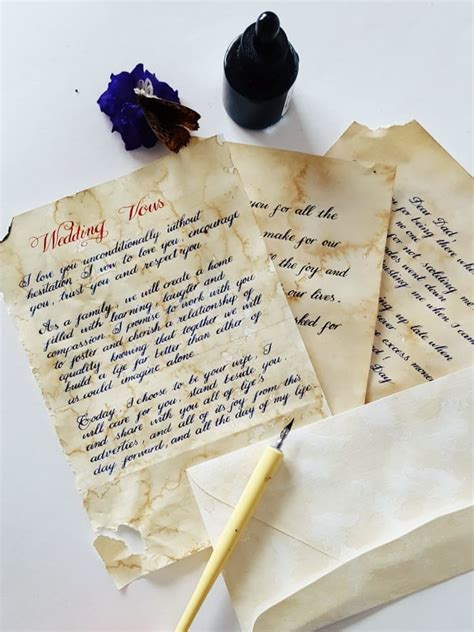 Wedding Vous
I love you unconditionally without
hesitation I vow to love you, encourage
you, trust you and respect you.
As a family, we will create a home
filled with learning, laught and
compassion. I promis to work with you
to foster and cherish a relationship of
equality knowing that together we will
build a life far better than either of
us could imagine alone.
Today, I choose to be your wife. I
will care for you, stand beside you,
and share with you all of life's
adverties, and all of its joy from this
day forward, and all the day of my life.
you for all the
make for our
e the joy and
our lives.
ked for
Dear Dad,
for being there
not scolding
les went down
e me when
up late when
express